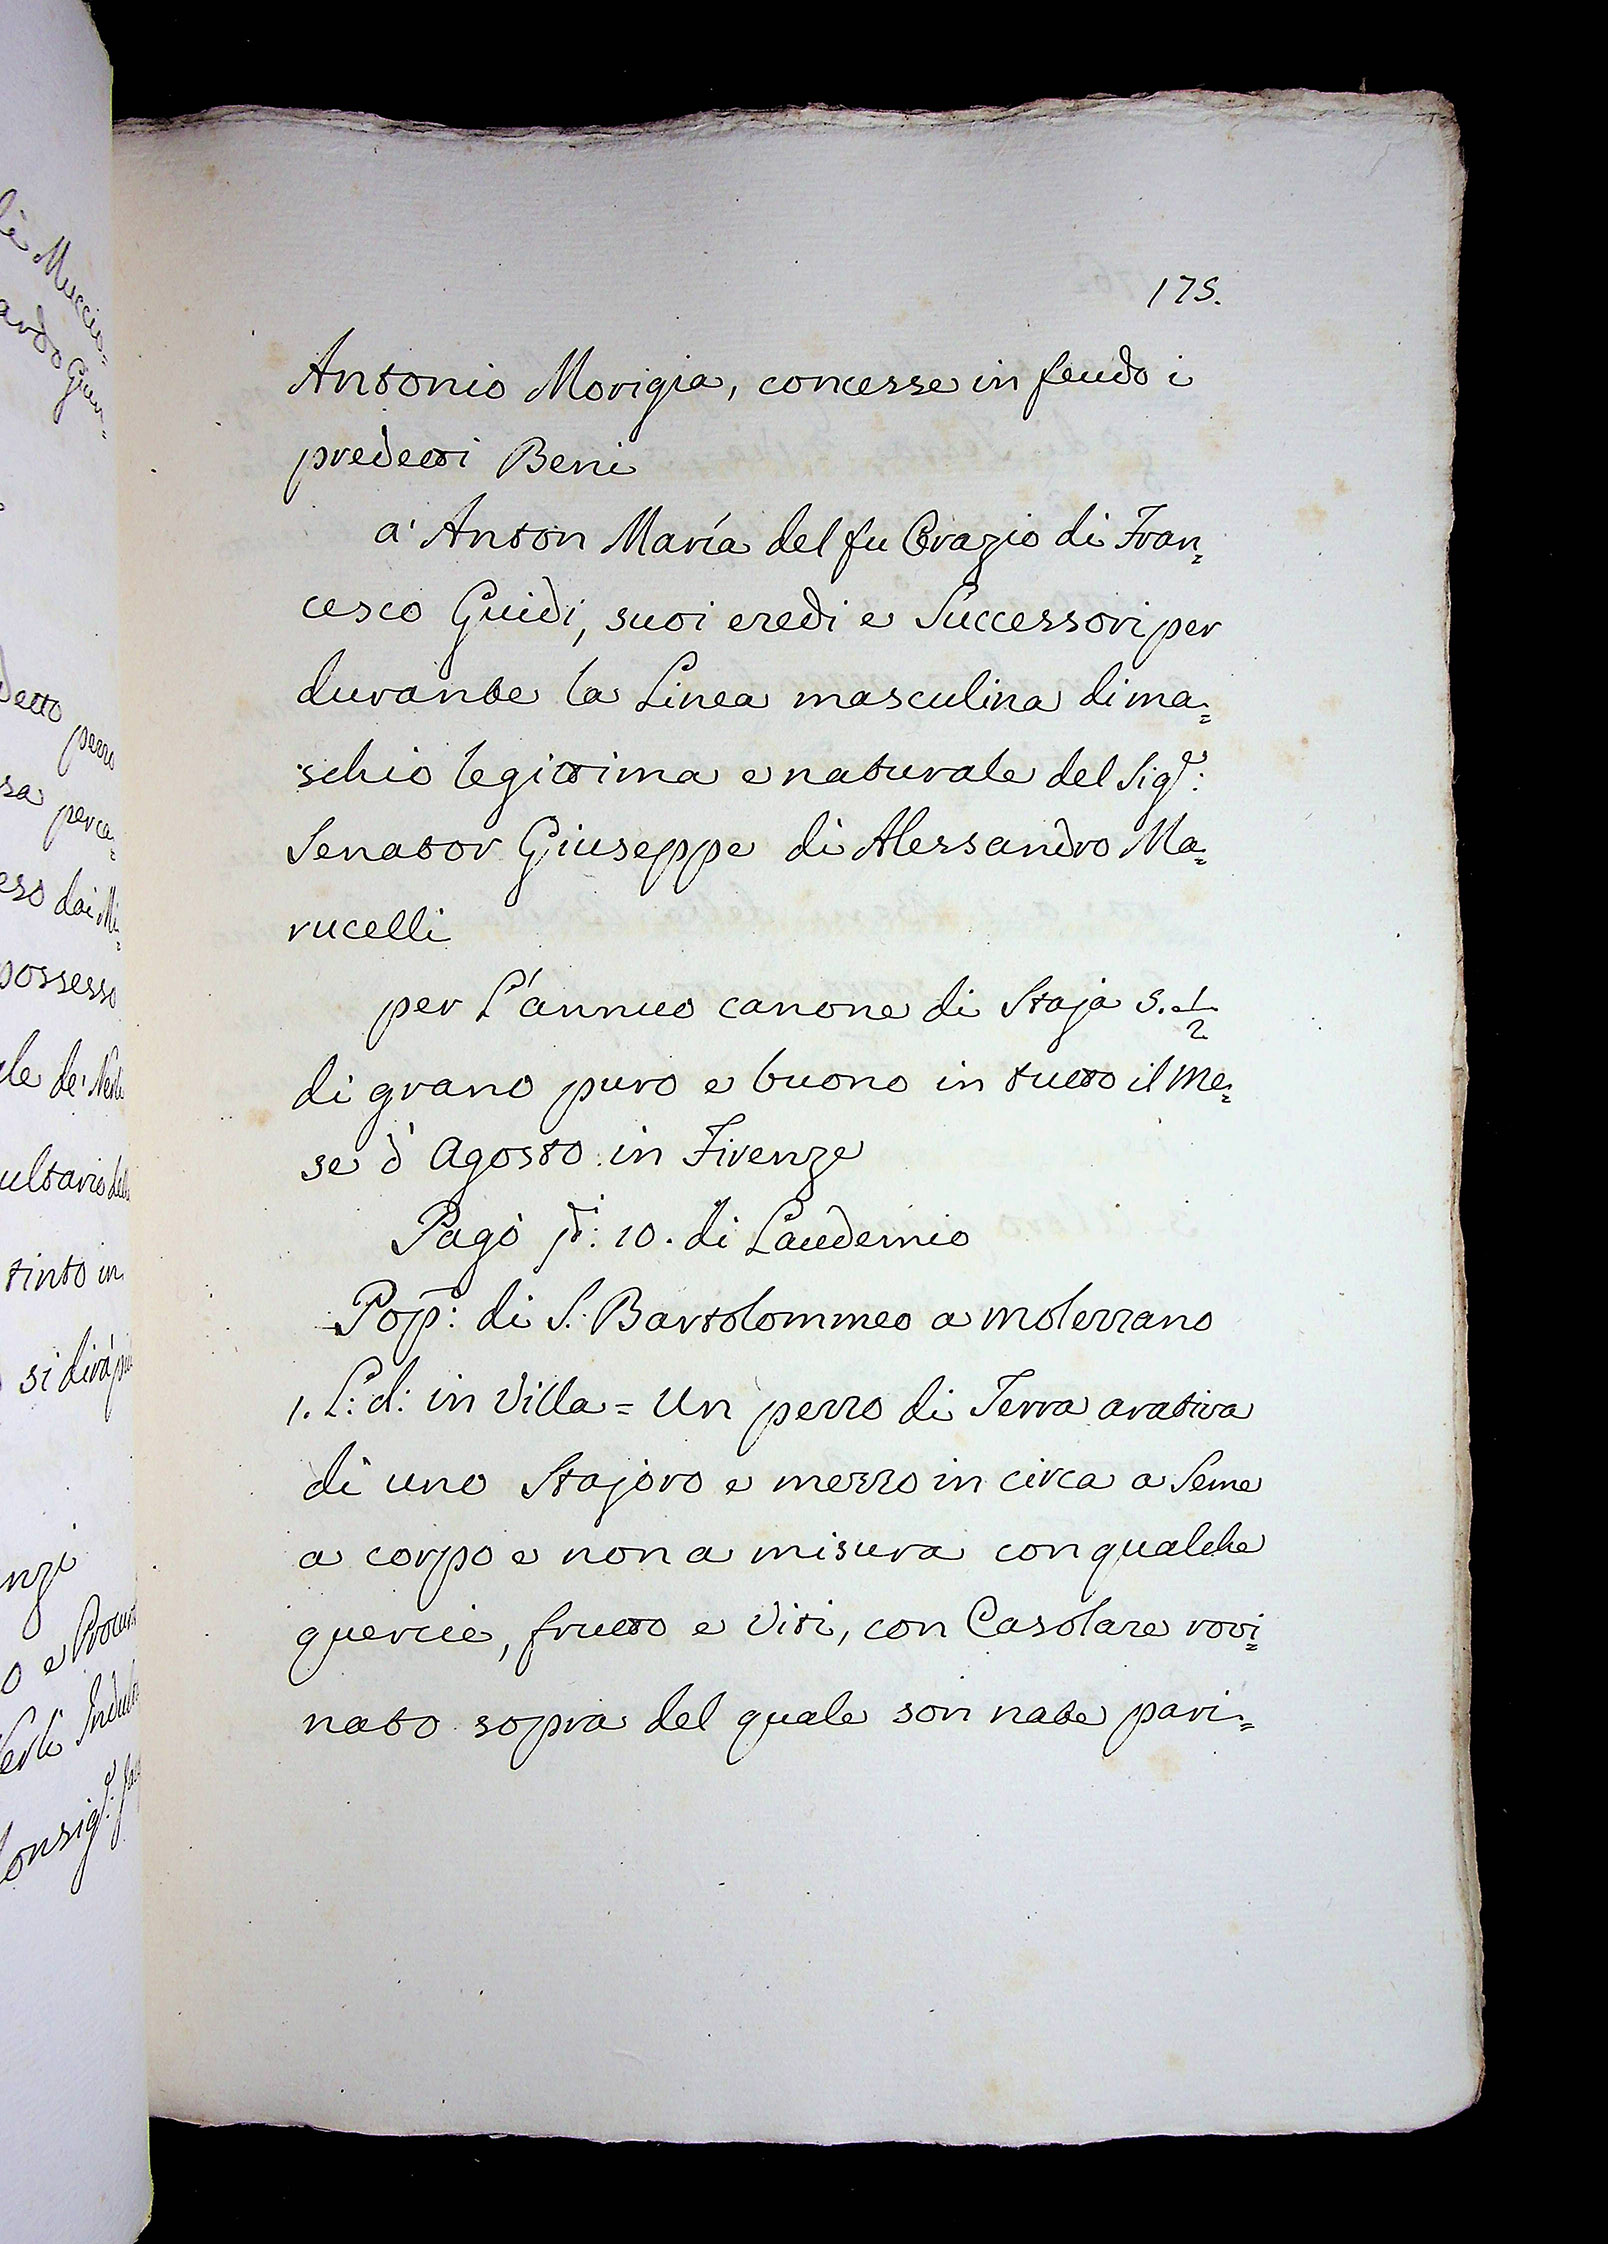 175.
Antonio Morigia, concesse in feudo i
predetti Beni
a' Anton María del fu Orazio di Fran=
cesco Guidi, suoi eredi e Successori per
durante la Linea masculina di ma=
schio legittima e naturale del Sig.r:
Senator Giuseppe di Alessandro Ma=
rucelli
per L'annuo canone di Staja 5. 1/2
di grano puro e buono in tutto il Me=
se d'Agosto in Firenze
Pagò di: 10. di Laudemio
Pop: di S. Bartolommeo a Molezzano
1. L: d: in Villa = Un pezzo di Terra arativa
di uno Stajoro e mezzo in circa a Seme
a corpo e non a misura con qualche
quercie, frutto e Viti, con Casolare rovi=
nato sopra del quale son nate pari=